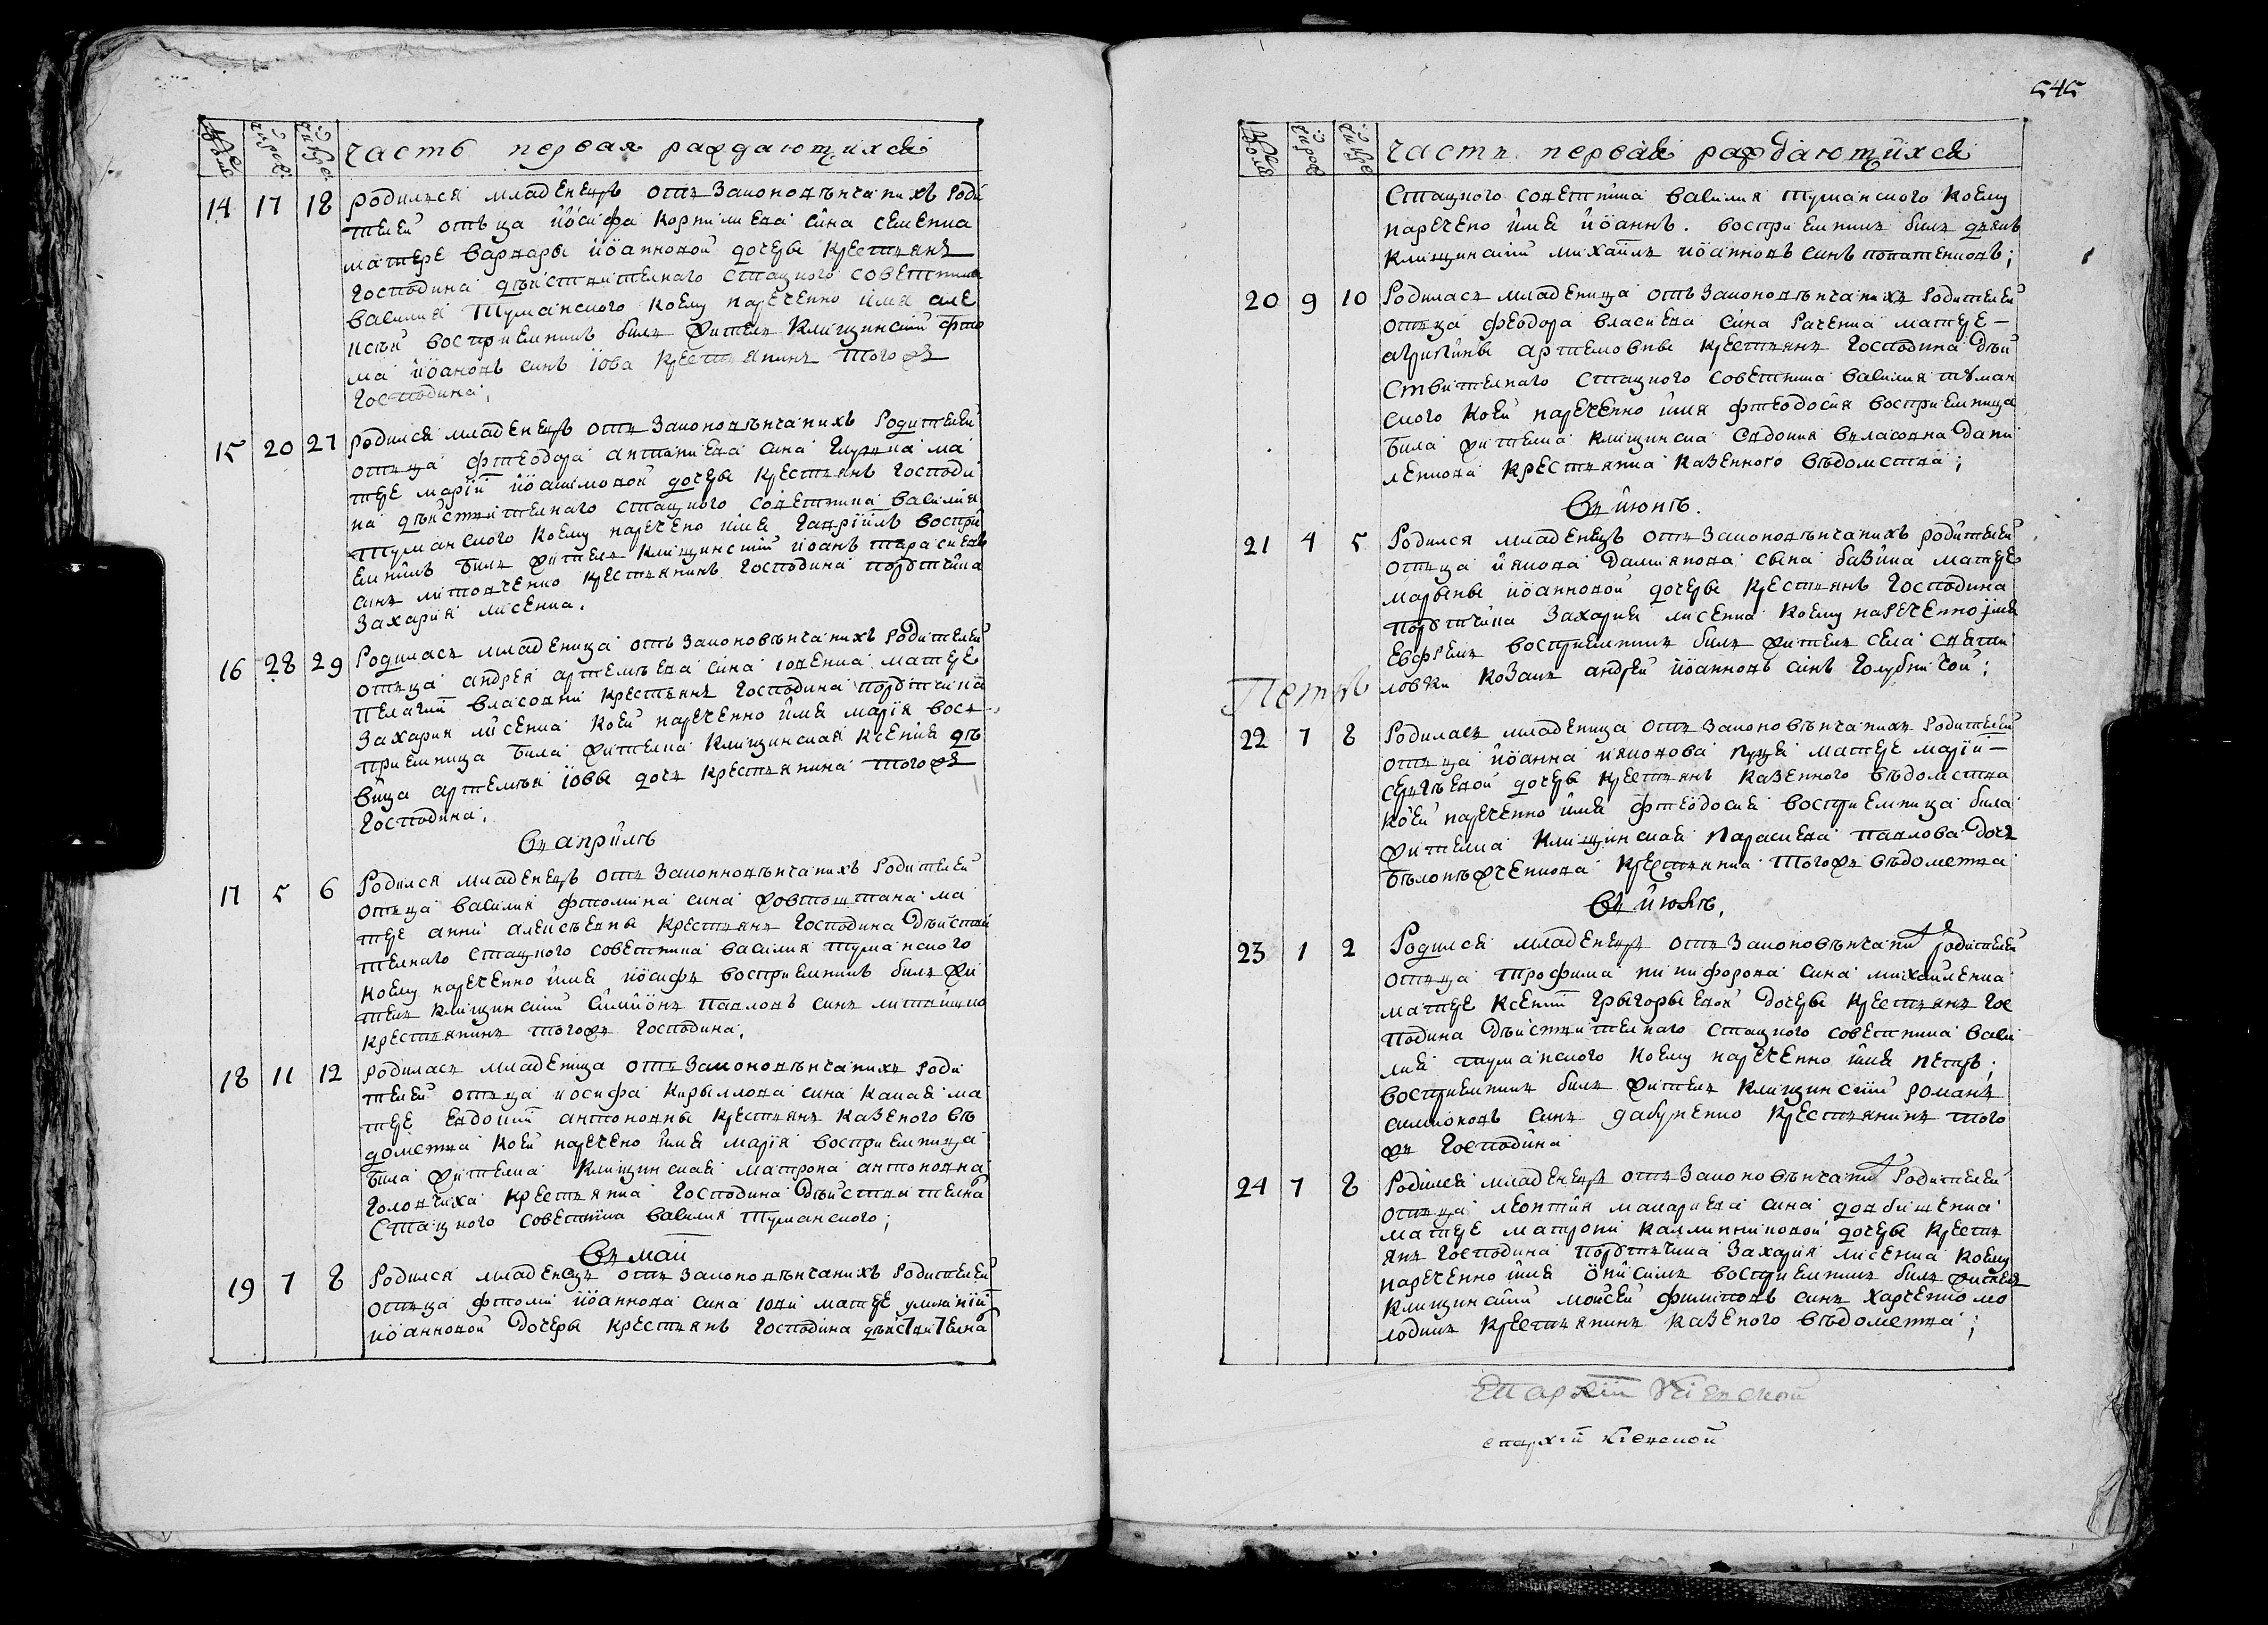 545
Часть первая раждающихся
14 17 18 родился младенецъ отъ законовѣнчанихъ роди
телей отъца Иоси́фа Корнилиева сина Семенка
матере Варвары Иоанновой дочеры крестьянъ
Господина дѣйствителнаго стацкого советника
Василия Туманского коему нареченно имя Але
ксѣй восприемникъ билъ житель Клищинский Фто
ма Иоановъ синъ Iова крестьянинъ того жъ
Господина;
15 20 21 родился младенецъ отъ законовѣнчанихъ родителей
отъца Фтеодора Антониева сина ма
тере Марии Иоакимовой дочеры крестьянъ Господи
на дѣйствителнаго стацкого советника Василия
Туманского коему наречено имя Гавриилъ воспри
емникъ билъ житель Клищинский Иоанъ Тарасиевъ
синъ Литовченко крестьянинъ Господина порутчика
Захария Лисенка.
16 28 29 Родилась младеница отъ законовѣнчанихъ родителей
отъца Андрея Артемъева сина Iовенка матере
Пелагии Власовни крестьянъ Господина порутчика
Захария Лисенка коей нареченно имя Мария вос
приемница била жителка Клищинская Ксения дѣ
вица Артемъя Iовы дочь крестьянина того жъ
Господина.
Въ априлѣ
17 5 6 Родился младенецъ отъ законновѣнчанихъ родителей
отъца Василия Фтомина сина Жовтоштана ма
тере Анни Алексѣевны крестьянъ Господина дѣйстви
телнаго стацкого советника Василия Туманского
коему нареченно имя Иосифъ восприемникъ билъ жи
тель Клищинский Симионъ Павловъ синъ
крестьянинъ того жъ Господина;
18 11 12 родилась младеница отъ законовѣнчанихъ роди
телей отъца Иосифа Кирыллова сина ма
тере Евдокии Антоновны крестьянъ казеного вѣ
домства коей наречено имя Мария восприемница
била жителка Клищинская Матрона Антоновна
Головчиха крестьянка Господина дѣйствителна
Стацкого советника Василия Туманского;
Въ май
19 7 8 Родился младенецъ отъ законовѣнчанихъ родителей
отъца Фтоми Иоаннова сина Iови матере Улияний
Иоанновой дочеры крестьянъ Господина дѣйствителна
Часть первая раждающихся
Стацкого советника Василия Туманского коему
наречено имя Иоаннъ. восприемникъ билъ дякъ
Клищинский Михаилъ Иоанновъ синъ Понятенковъ;
20 9 10 Родилась младеница отъ законовѣнчанихъ родителей
отъца Феодора Власиева сина Раченка матере
Агрипины Артемовны крестьянъ Господина дѣй
ствителнаго стацкого советника Василия Туман
ского коей нареченно имя Фтеодосия восприемница
била жителка Клищинска Явдокия Власовна Дани
ленкова крестьянка казенного вѣдомства;
Въ июнѣ.
21 4 5 Родился младенецъ отъ законовѣнчанихъ родителей
отъца Иякова Дамиянова сына Базика матере
Марыны Иоанновой дочеры крестьянъ Господина
порутчика Захария Лисенка коему нареченно имя
Евфремъ восприемникъ билъ житель села
ловки козакъ Андрей Иоанновъ синъ Голубничой;
Петръ
22 7 8 Родилась младеница отъ законовѣнчанихъ родителей
отъца Иоанна Ияковова Пуцая матере Марии
Сергѣевой дочеры крестьянъ казенного вѣдомства
коей нареченно имя Фтеодосия восприемница била
жителка Клищинская Параскева Павлова дочь
Бѣлонѣжченкова крестьянка того жъ вѣдомства
Въ июлѣ.
23 1 2 Родился младенецъ отъ законовѣнчаних родителей
отъца Трофима Никифорова сина Михайленка
матере Ксении Грыгорыевой дочеры крестьянъ Гос
подина дѣйствителнаго стацкого советника Васи
лия Туманского коему нареченно имя Петръ;
восприемникъ билъ житель Клищинский Романъ
синъ крестьянинъ того
жъ Господина
24 7 8 Родился младенецъ отъ законовѣнчаних родителей
отъца Леонтия Макариева сина Довбишенка
матере Матрони Каллинниковой дочеры кресть
янъ Господина порутчика Захария Лисенка коему
нареченно имя Онисимъ восприемникъ билъ житель
Клищинский Мойсей Филиповъ синъ Харченко мо
лодикъ крестьянинъ казеного вѣдомства;
Епархии Киевской
епархии Киевской